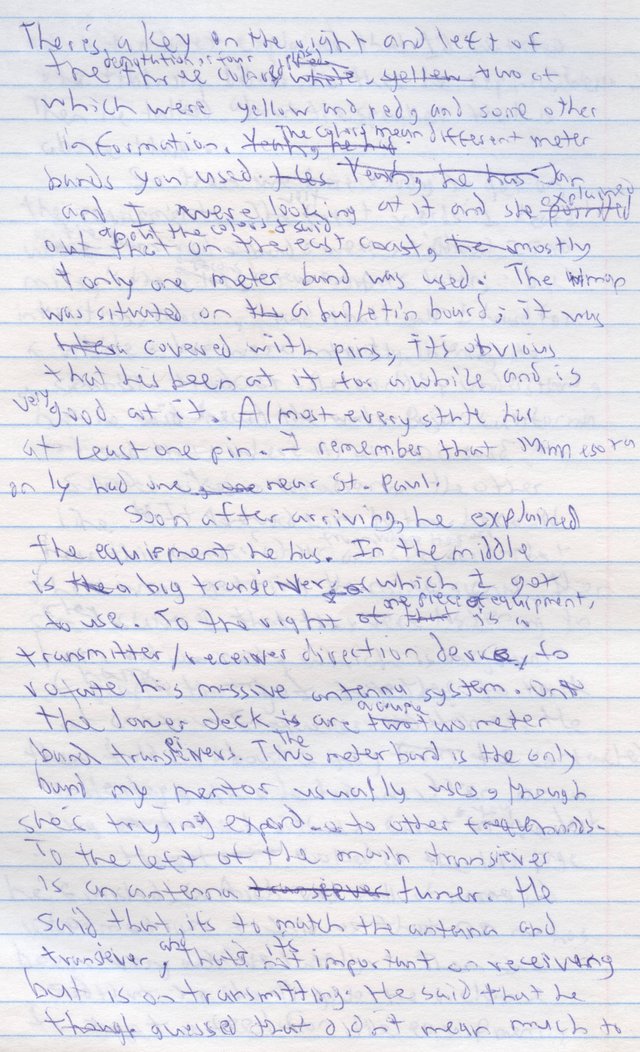 There's a key on the right and left of
denotation of four pins,
the three colors, white, yellow two of
which were yellow and red, and some other
The colors mean
information. Yeah, he has different meter
bands you used. Yeah, he has Jan
and I were looking at it and she explained pointed
about the colors & said
out that on the east coast, he mostly
& only one meter band was used. The map
was situated on the a bulletin board; it was
covered with pins, it's obvious
that his been at it for awhile and is
very good at it. Almost every state had
at least one pin. I remember that Minnesota
only had one, one near St. Paul.
Soon after arriving, he explained
the equipment he has. In the middle
is the a big transiever, which I got
one piece of equipment,
to use. To the right of that is a
transmitter/receiver direction device, to
rotate his massive antenna system. On
a couple
the lower deck is are two two meter
The
band transievers. Two meter band is the only
band my mentor usually uses, though
she's trying expand to other bands.
To the left of the main transiever
is an antenna transiever tuner. He
said that, its to match the antenna and
and its
transiever, that's not important on receiving
but is on transmitting. He said that he
though guessed that didn't mean much to